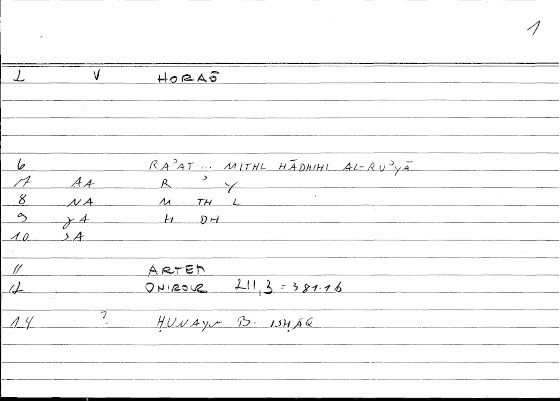 1
2 V HORAŌ
6 RAʾAT ... MITHL HĀDHIHI AL-RUʾYĀ
7 AA R ʾ Y
8 NA M TH L
9 H DH
10 SA
11 ARTEM
12 ONIROCR 211,3 = 381.16
14 ? ḤUNAYN B. ISḤĀQ